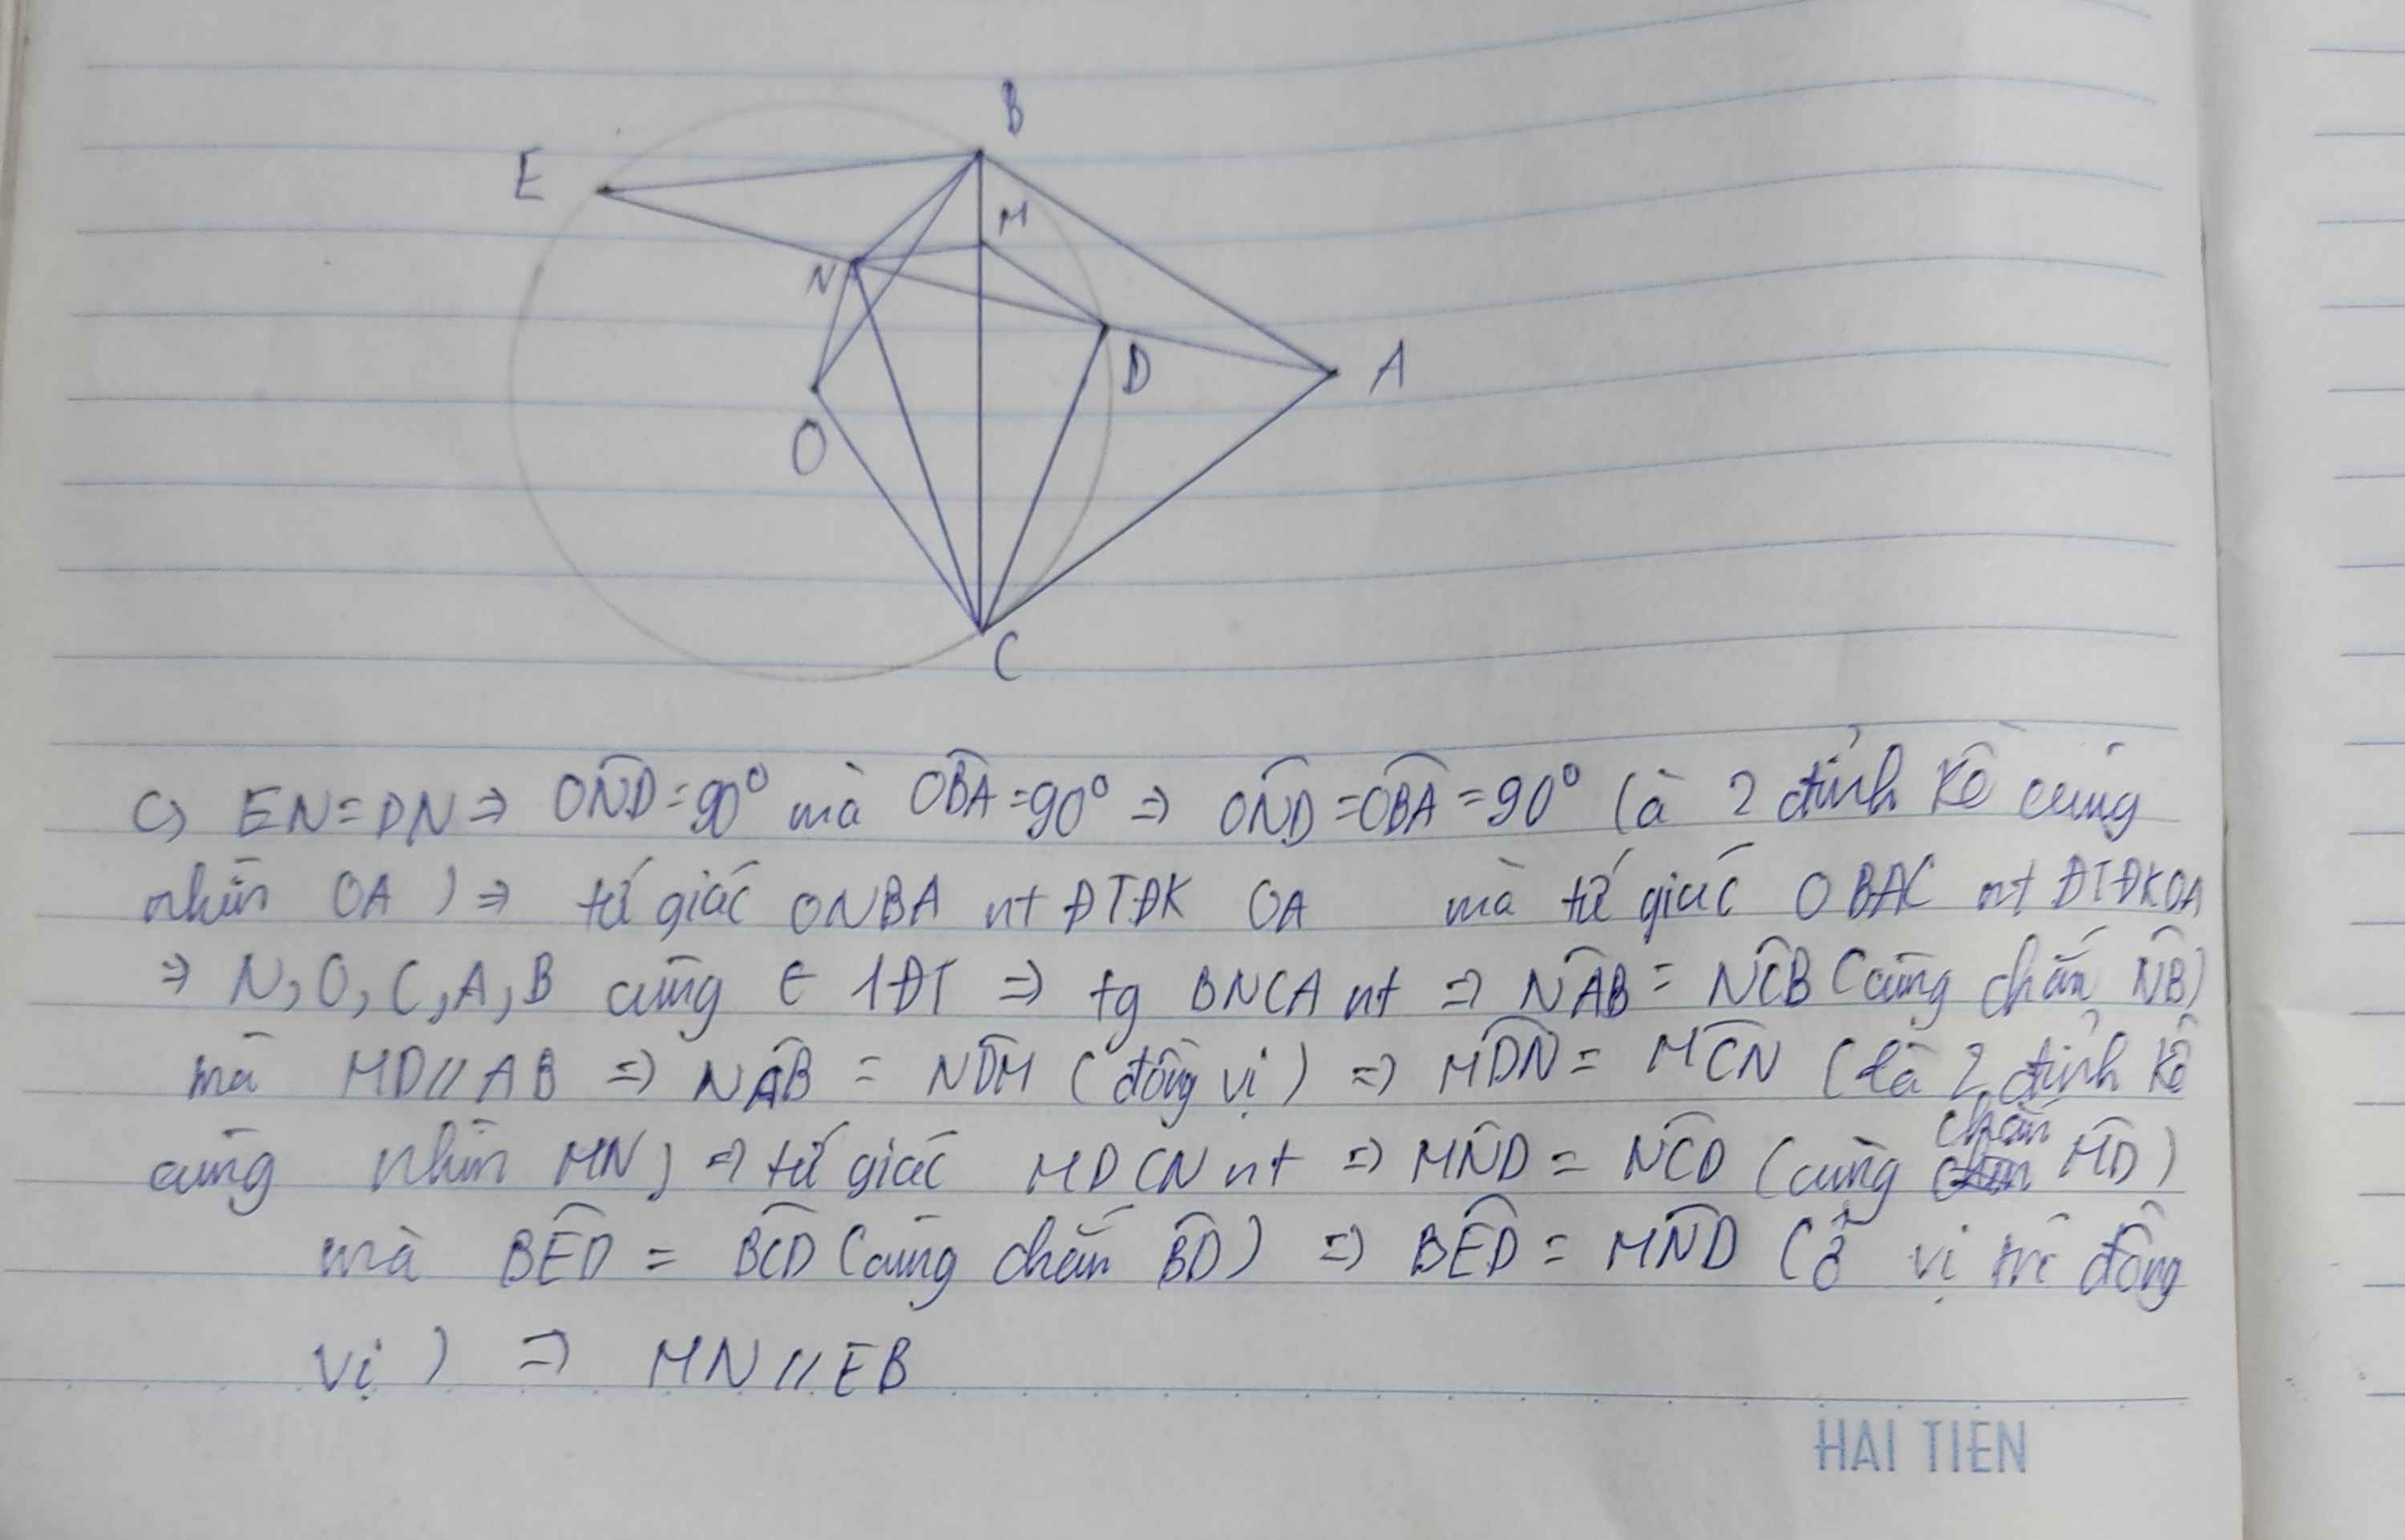 B
E
M
N
D
A
O
C
c) EN = DN ⇒ OND̂ = 90° mà OBÂ = 90° ⇒ OND̂ = OBÂ = 90° (à 2 đỉnh kề cùng
nhìn OA) ⇒ tứ giác ONBA nt ĐTĐK OA mà tứ giác OBAC nt ĐTĐKOA
⇒ N, O, C, A, B cùng ∈ 1 ĐT ⇒ tg BNCA nt ⇒ NAB̂ = NCB̂ (cùng chắn NB̂)
mà MD // AB ⇒ NAB̂ = NDM̂ (đồng vị) ⇒ MDN̂ = MCN̂ (là 2 đỉnh kề
cùng nhìn MN) ⇒ tứ giác MDCN nt ⇒ MND̂ = NCD̂ (cùng chắn MD̂)
mà BED̂ = BCD̂ (cùng chắn BD̂) ⇒ BED̂ = MND̂ (ở vị trí đồng
vị) ⇒ MN // EB
HAI TIEN